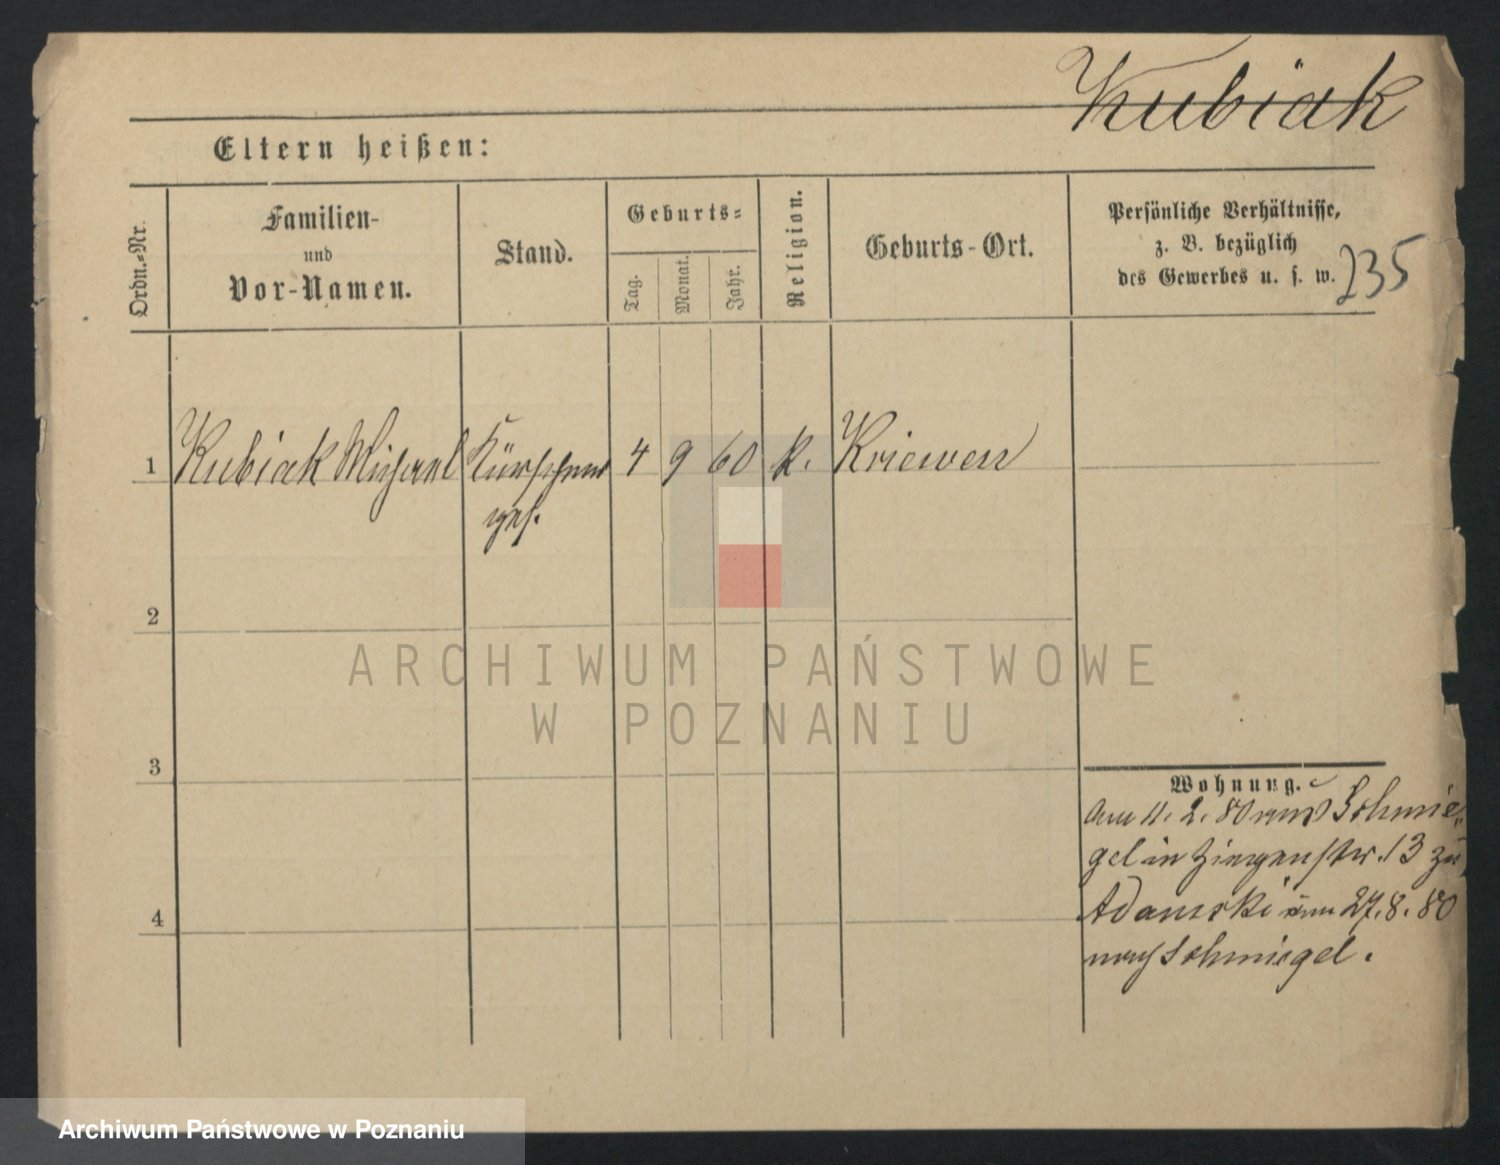 Kubiak
Eltern heißen:
Ordn.-Nr.
Familien-
und
Vor-Namen.
Stand.
Geburts-
Tag.
Monat.
Jahr.
Religion.
Geburts-Ort.
Persönliche Verhältnisse,
z. B. bezüglich
des Gewerbes u. s. w.
235
1 Kubiak Michael Kürschner 4 9 60 k. Kriewen
ges.
2
3
4
Wohnung.
Am 11. 2. 80 aus Schmie-
gel in Ziegenstr. 13 zu
Adamski am 27. 8. 80
nach Schmiegel.
ARCHIWUM PAŃSTWOWE
W POZNANIU
Archiwum Państwowe w Poznaniu